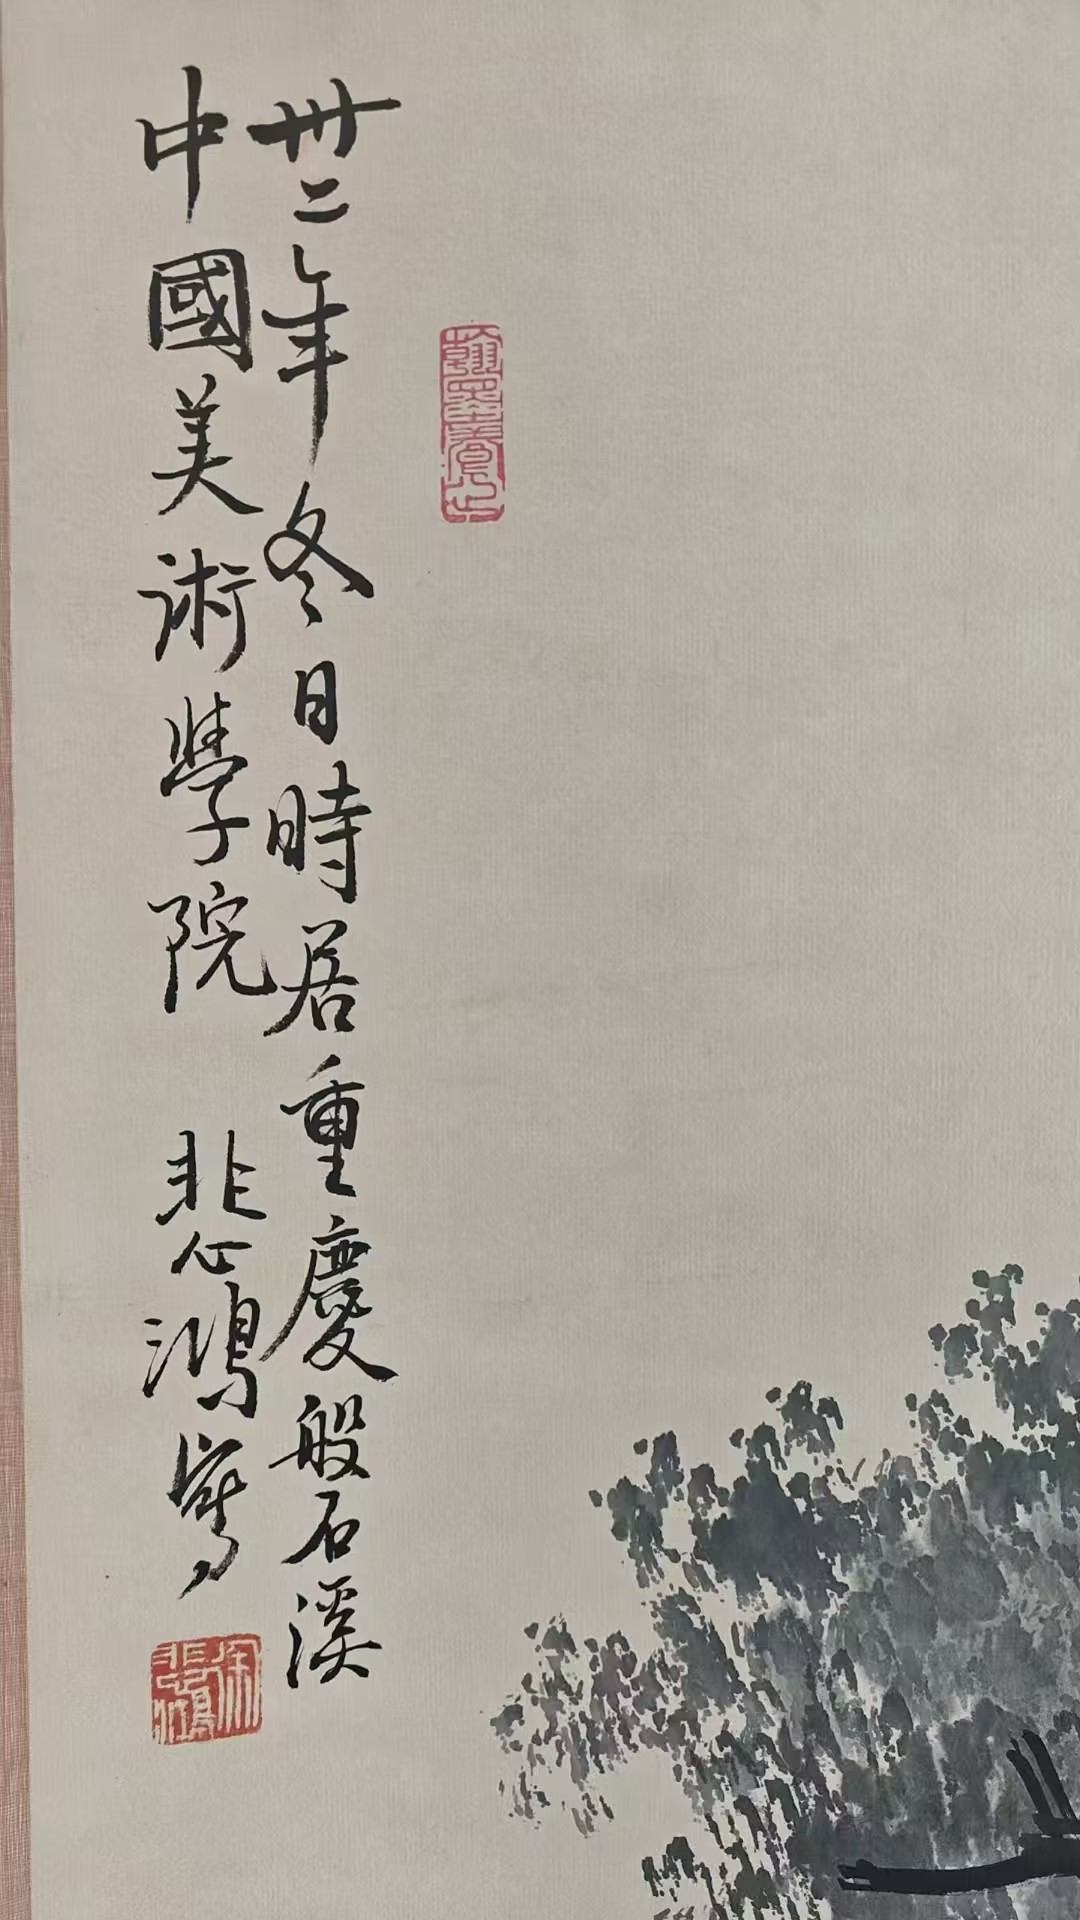 卅二年冬日時居重慶般石溪
中國美術學院 悲鴻寫
徐悲鴻